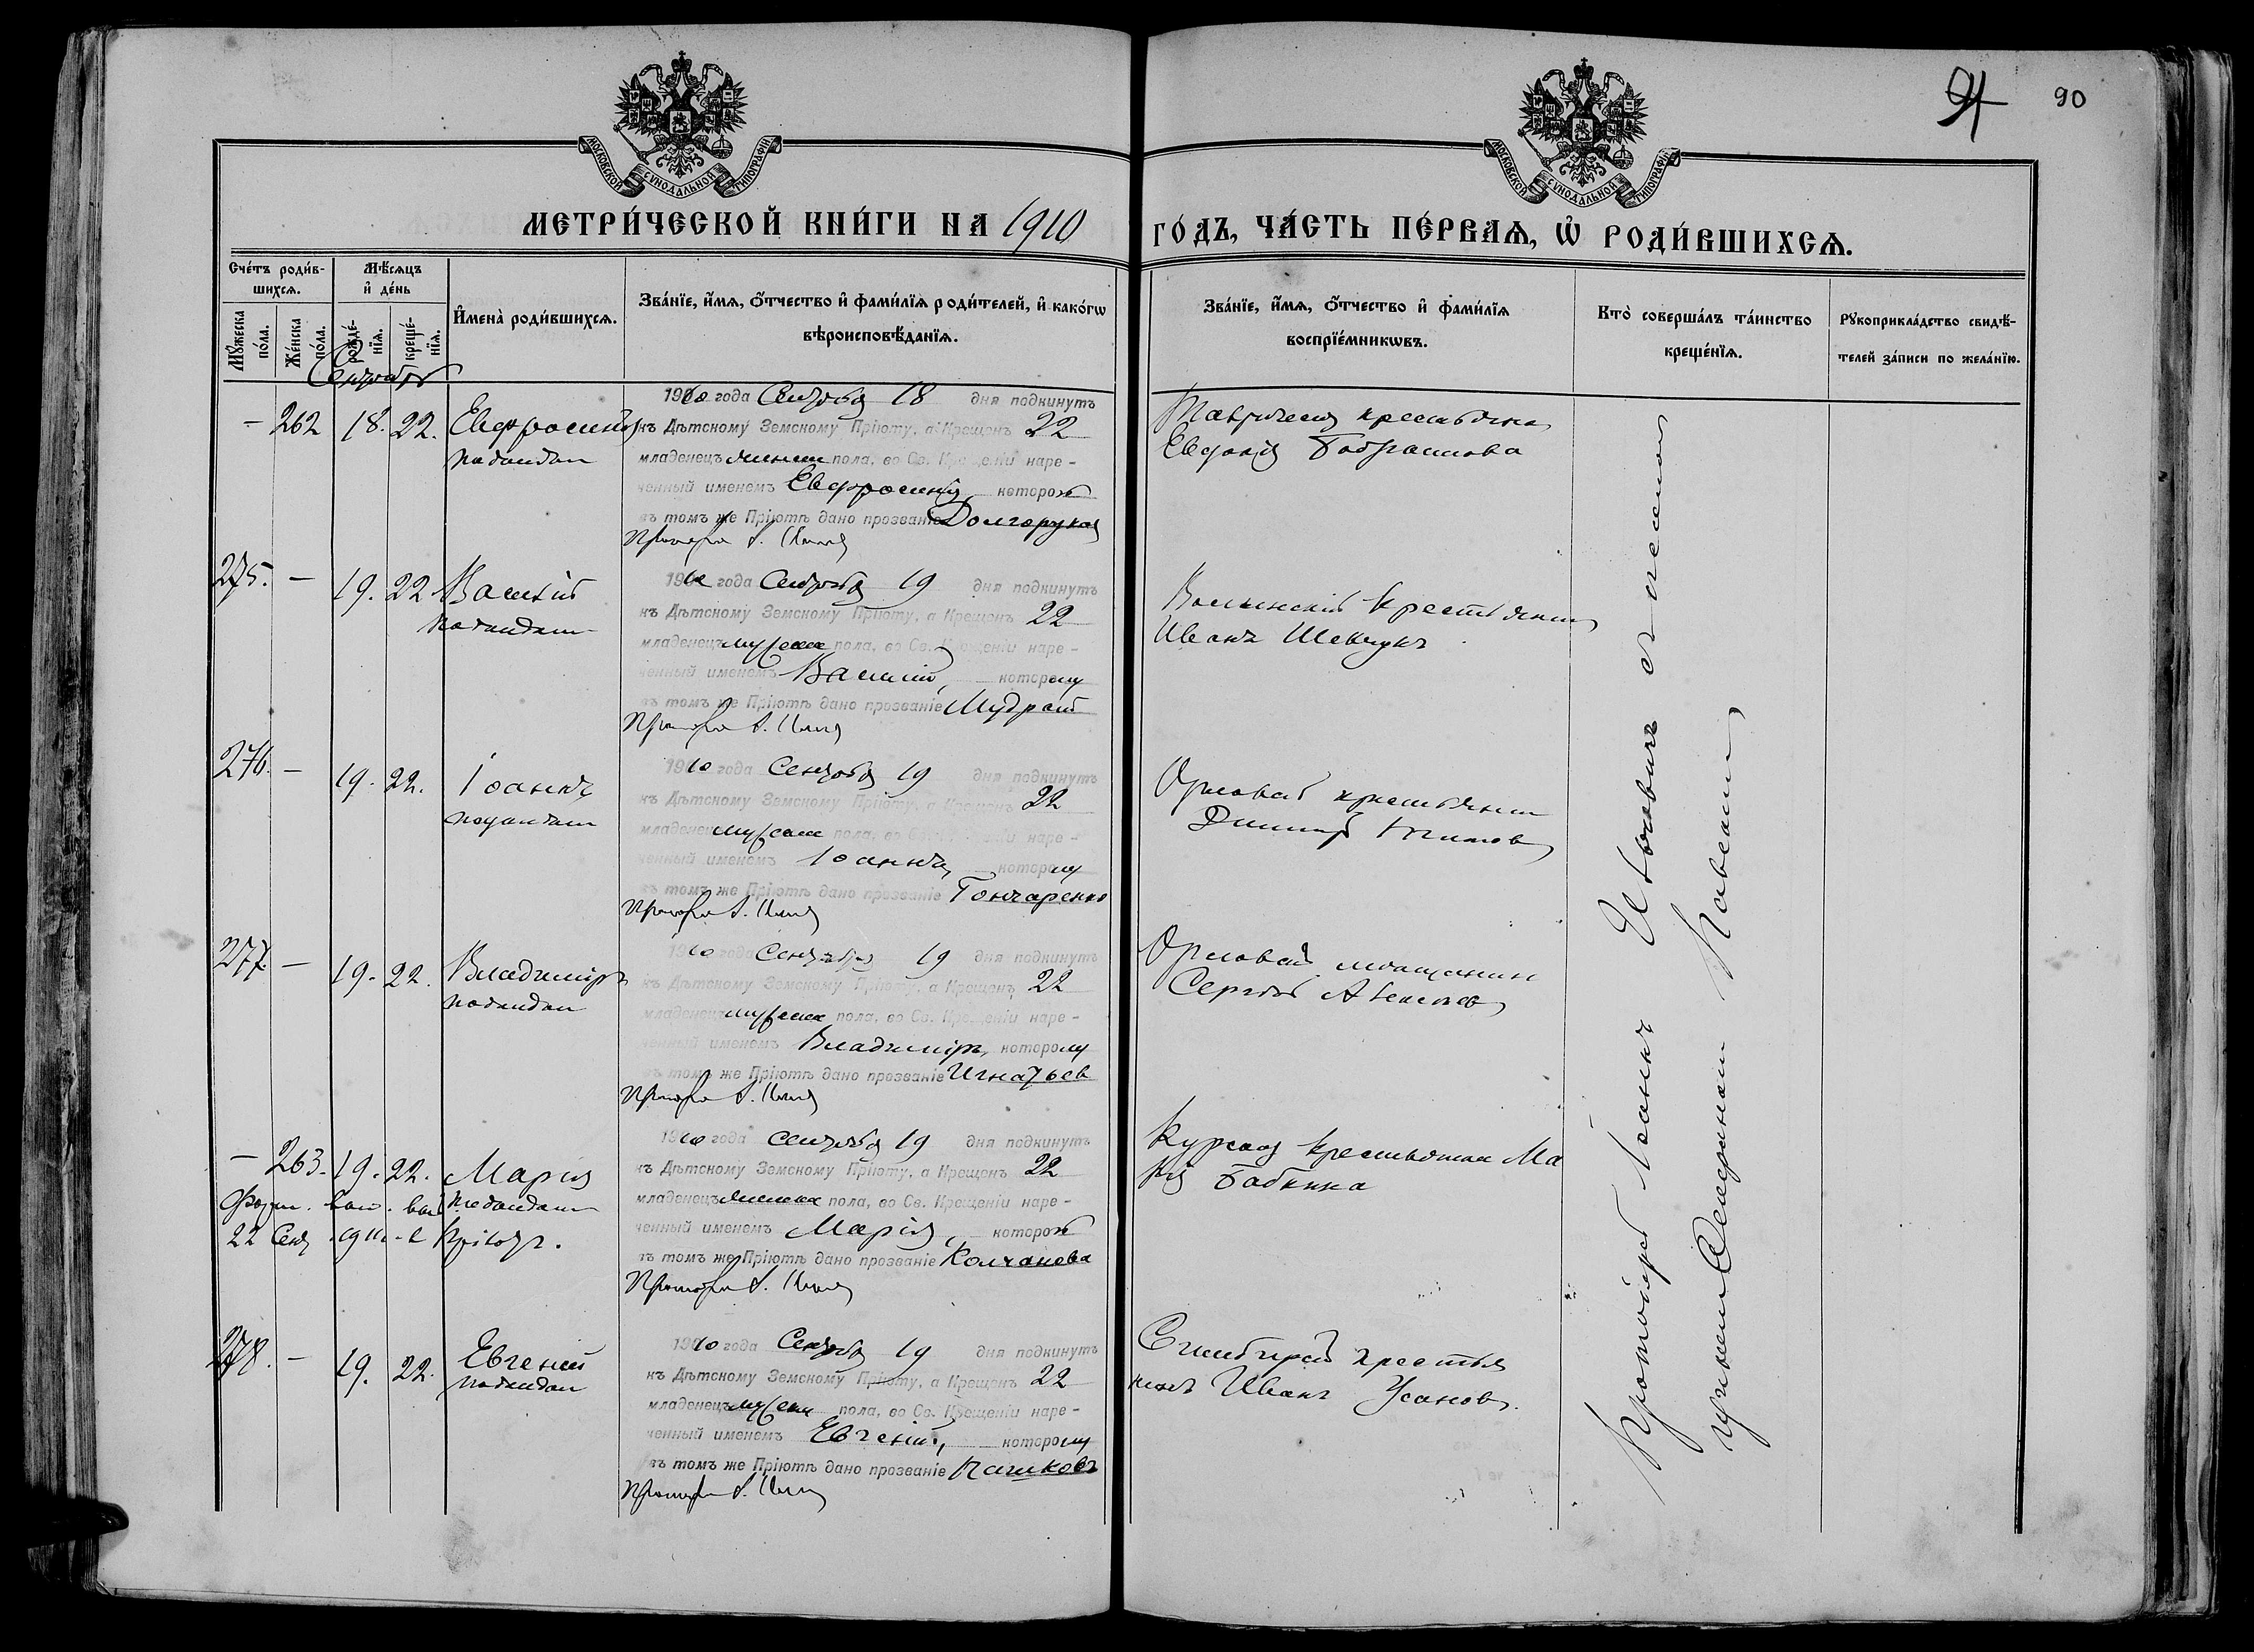 91 90
МОСКОВСКОЙ СѴНОДАЛЬНОЙ ТИПОГРАФІИ
МОСКОВСКОЙ СѴНОДАЛЬНОЙ ТИПОГРАФІИ
МЕТРИ́ЧЕСКОЙ КНИ́ГИ НА 1910 ГО́ДЪ, ЧА́СТЬ ПЕ́РВАѦ, Ѡ҆ РОДИ́ВШИХСѦ.
Сче́тъ роди́в-
шихсѧ.
Мꙋ́жеска по́ла.
Же́нска по́ла.
Мѣ́сѧцъ
и҆ де́нь
рожде́-нїѧ.
креще́-нїѧ.
И҆мена̀ роди́вшихсѧ.
Зва́нїе, и҆́мѧ, ѻ҆́тчество и҆ фами́лїѧ роди́телей, и҆ како́гѡ
вѣроисповѣ́данїѧ.
Зва́нїе, и҆́мѧ, ѻ҆́тчество и҆ фами́лїѧ
воспрїе́мникѡвъ.
Кто̀ соверша́лъ та́инство
креще́нїѧ.
Рꙋкоприкла́дство свидѣ́-
телей за́писи по жела́нїю.
Сентябрь
— 262 18. 22. Евфросинія
1910 года Сентября 18 дня подкинутъ
къ Дѣтскому Земскому Пріюту, а Крещенъ 22
младенецъ женска пола, во Св. Крещеніи наре-
ченный именемъ Евфросинія, которой
въ томъ же Пріютѣ дано прозваніе Долгорукая
Таврическая крестьянка
Евдокія
275. — 19. 22 Василій
1910 года Сентября 19 дня подкинутъ
къ Дѣтскому Земскому Пріюту, а Крещенъ 22
младенецъ мужеска пола, во Св. Крещеніи наре-
ченный именемъ Василій, которому
въ томъ же Пріютѣ дано прозваніе Мудрый
Волынскій крестьянинъ
Иванъ Шевчукъ
276. — 19. 22. Іоаннъ
1910 года Сентября 19 дня подкинутъ
къ Дѣтскому Земскому Пріюту, а Крещенъ 22
младенецъ мужеска пола, во Св. Крещеніи наре-
ченный именемъ Іоаннъ, которому
въ томъ же Пріютѣ дано прозваніе Гончаренко
Орловскій крестьянинъ
Димитрій
277. — 19. 22. Владиміръ
1910 года Сентября 19 дня подкинутъ
къ Дѣтскому Земскому Пріюту, а Крещенъ 22
младенецъ мужеска пола, во Св. Крещеніи наре-
ченный именемъ Владиміръ, которому
въ томъ же Пріютѣ дано прозваніе Игнатьев
Орловскій мѣщанинъ
Сергѣй
— 263. 19. 22. Марія
22 Сент
1910 года Сентября 19 дня подкинутъ
къ Дѣтскому Земскому Пріюту, а Крещенъ 22
младенецъ женска пола, во Св. Крещеніи наре-
ченный именемъ Марія, которой
въ томъ же Пріютѣ дано прозваніе Колчанова
Курская крестьянка Ма
рія Бабкина
278. — 19. 22. Евгеній
1910 года Сентября 19 дня подкинутъ
къ Дѣтскому Земскому Пріюту, а Крещенъ 22
младенецъ мужеска пола, во Св. Крещеніи наре-
ченный именемъ Евгеній, которому
въ томъ же Пріютѣ дано прозваніе Пашковъ
Симбирскій крестья
нинъ Иванъ Усановъ.
Протоіерей Іоаннъ